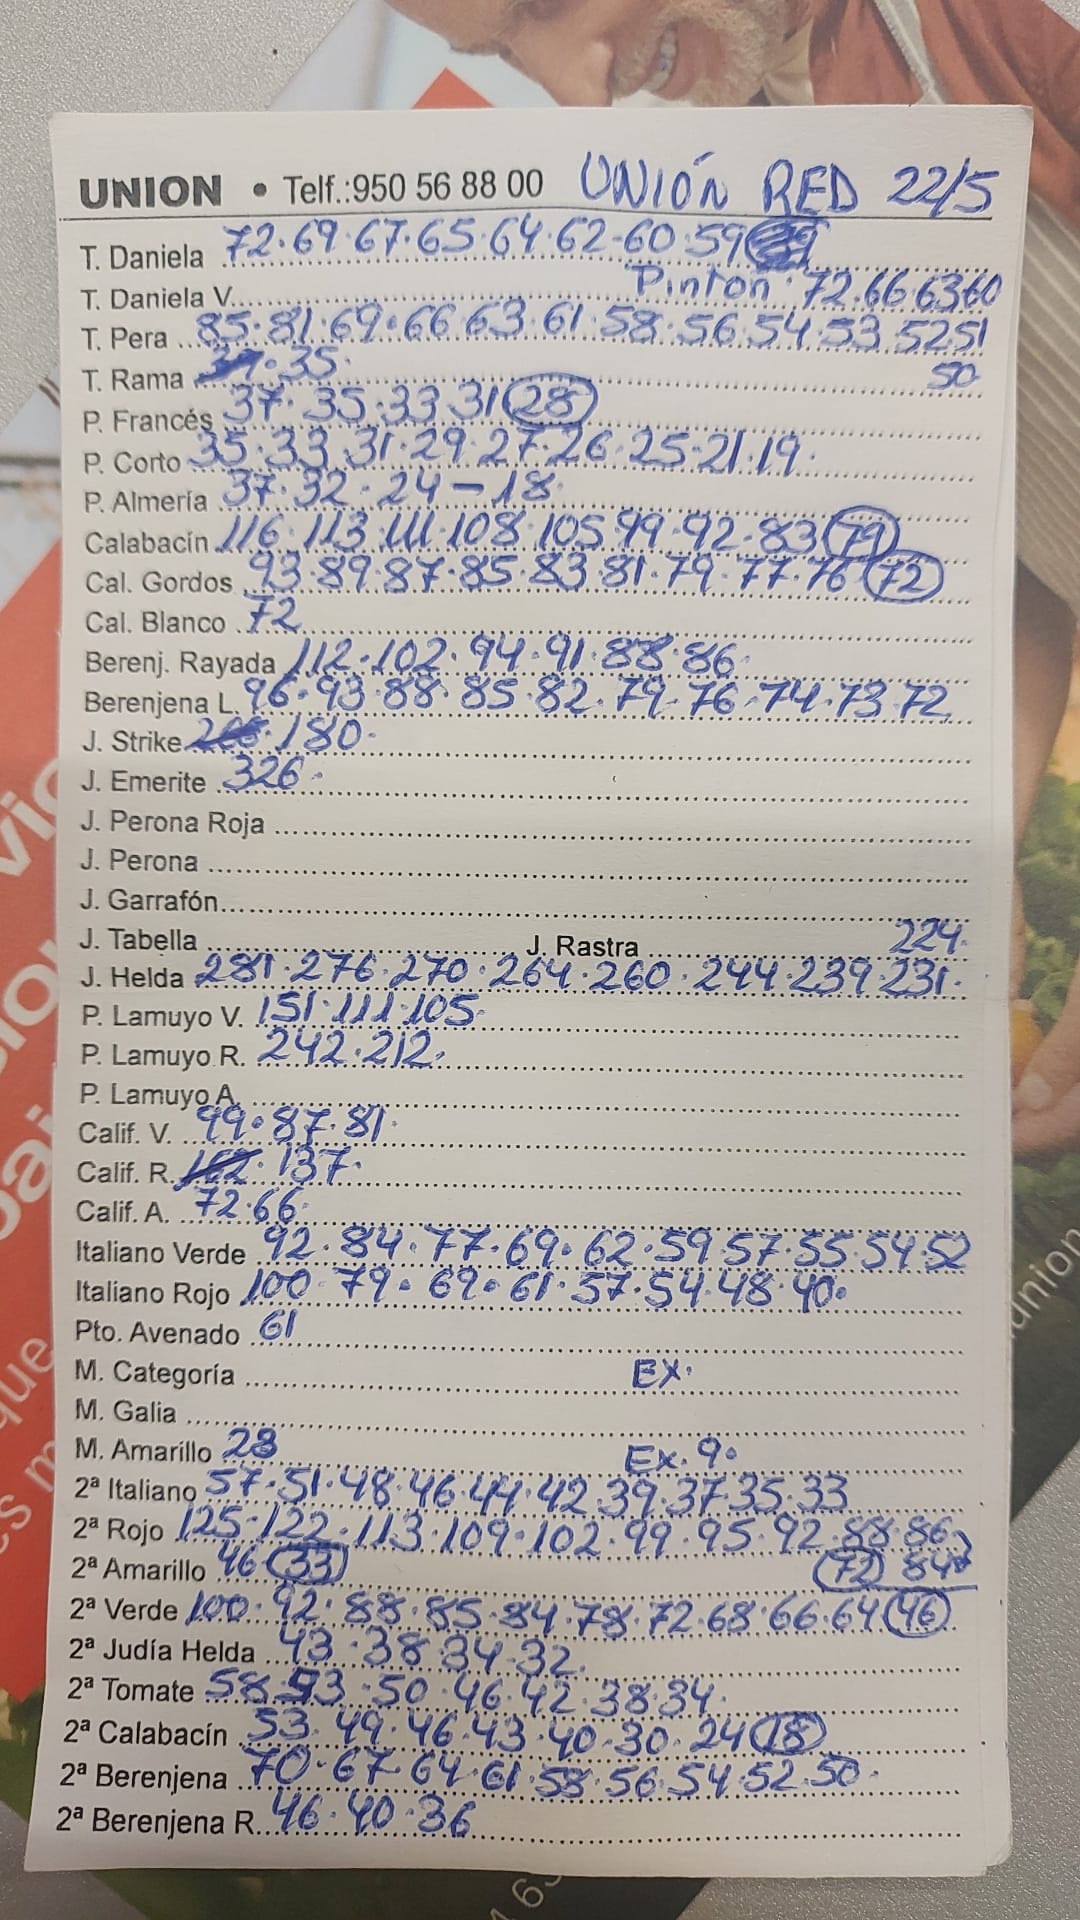 UNION • Telf.:950 56 88 00 UNIÓN RED 22/5
T. Daniela 72·69·67·65·64·62-60·59
T. Daniela V. Pinton·72·66·63·60
T. Pera 85·81·69·66·63·61·58·56·54·53·52·51
50
T. Rama 35·
P. Francés 37·35·33·31 28
P. Corto 35·33·31·29·27·26·25·21·19·
P. Almería 37·32·24-18·
Calabacín 116·113·111·108·105·99·92·83 79
Cal. Gordos 93·89·87·85·83·81·79·77·76 72
Cal. Blanco 72
Berenj. Rayada 112·102·94·91·88·86·
Berenjena L. 96·93·88·85·82·79·76·74·73·72
J. Strike 180·
J. Emerite 326·
J. Perona Roja
J. Perona
J. Garrafón
J. Tabella J. Rastra 224·
J. Helda 281·276·270·264·260·244·239·231·
P. Lamuyo V. 151·111·105·
P. Lamuyo R. 242·212·
P. Lamuyo A.
Calif. V. 99·87·81·
Calif. R. 137·
Calif. A. 72·66·
Italiano Verde 92·84·77·69·62·59·57·55·54·52
Italiano Rojo 100·79·69·61·57·54·48·40·
Pto. Avenado 61
M. Categoría EX·
M. Galia
M. Amarillo 28 Ex·9·
2ª Italiano 57·51·48·46·44·42·39·37·35·33
2ª Rojo 125·122·113·109·102·99·95·92·88·86
2ª Amarillo 46 33 72 84
2ª Verde 100·92·88·85·84·78·72·68·66·64 46
2ª Judía Helda 43·38·34·32·
2ª Tomate 58·53·50·46·42·38·34·
2ª Calabacín 53·49·46·43·40·30·24 18
2ª Berenjena 70·67·64·61·58·56·54·52·50·
2ª Berenjena R. 46·40·36
union